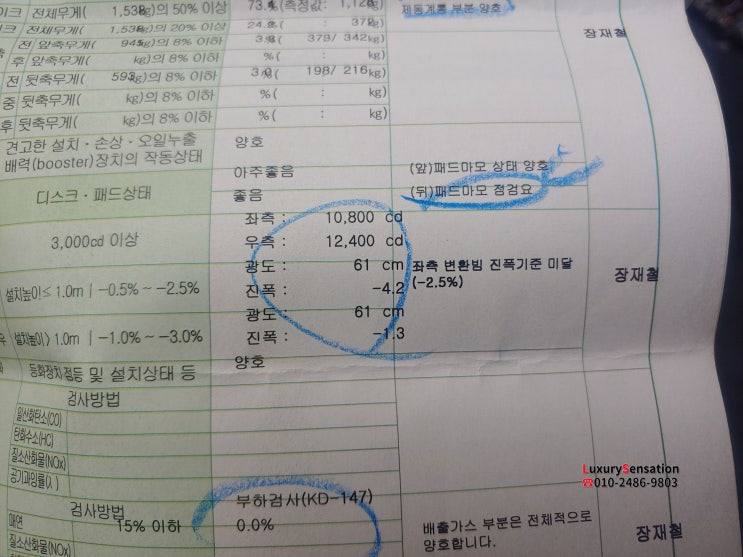 이크 전체무게( 1,538kg)의 50% 이상 73.4%(측정값: 1,128kg) 제동계통 부분 양호
크 전체무게( 1,538kg)의 20% 이상 24.2%( : 372kg)
전 앞축무게( 945kg)의 8% 이하 3.3%( 373/ 342kg) 장재철
후 앞축무게( kg)의 8% 이하 %( : kg)
전 뒷축무게( 593kg)의 8% 이하 3.0%( 198/ 216kg)
중 뒷축무게( kg)의 8% 이하 %( : kg)
후 뒷축무게( kg)의 8% 이하 %( : kg)
견고한 설치·손상·오일누출 양호
배력(booster)장치의 작동상태
디스크·패드상태 아주좋음 (앞)패드마모 상태 양호
좋음 (뒤)패드마모 점검요
3,000cd 이상 좌측 : 10,800 cd
우측 : 12,400 cd
광도 : 61 cm 좌측 변환빔 진폭기준 미달
설치높이≤ 1.0m | -0.5% ~ -2.5% 진폭 : -4.2 (-2.5%) 장재철
광도 : 61 cm
설치높이> 1.0m | -1.0% ~ -3.0% 진폭 : -1.3
등화장치 점등 및 설치상태 등 양호
검사방법
일산화탄소(CO)
탄화수소(HC)
질소산화물(NOx)
공기과잉률(λ)
LuxurySensation
☎010-2486-9803
검사방법 부하검사(KD-147)
매연 15% 이하 0.0% 배출가스 부분은 전체적으로
양호합니다. 장재철
질소산화물(NOx)